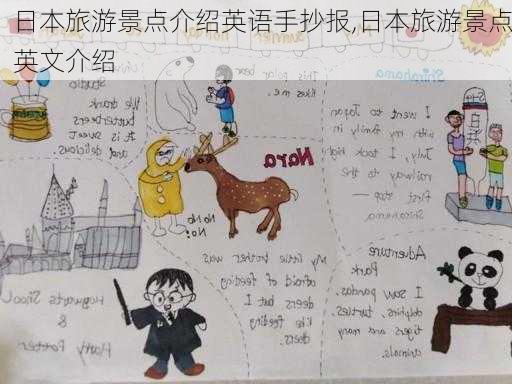 日本旅游景点介绍英语手抄报,日本旅游景点
英文介绍
Shirahama
I went to Japan
with my family in
July, I took high
railway to the
First stop —
Shirahama.
This polar bear
likes me.
Studio
We drank
butterbeers
It is sweet
and delicious
Nara
No No
No!
My little brother was
afraid of feeding
deers but I
like feeding
deers.
Adventure
Park
I saw pandas,
dolphins, turtles,
tigers and many
animals.
Hogwarts Shool
&
Harry Potter